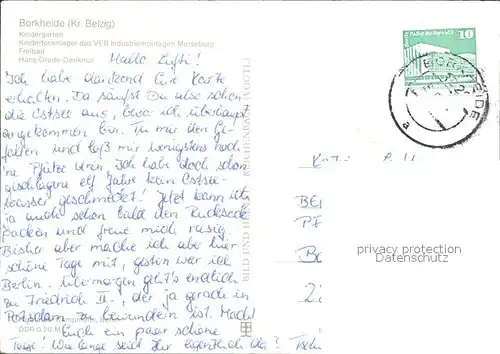 Borkheide (Kr. Belzig)
Kindergarten
Kinderferienlager des VEB Industriemontagen Merseburg
Freibad
Hans-Grade-Denkmal
Hallo
Ich habe dankend Eure Karte
erhalten. Da säufst Du also schon
die Ostsee aus, bevor ich überhaupt
angekommen bin. Tu mir den Ge-
fallen und laß mir wenigstens noch
'ne Pfütze drin, Ich hab doch schon
geschlagene elf Jahre kein Ostsee-
wasser geschmeckt! Jetzt kann ich
ja auch schon bald den Rucksack
packen und freue mich riesig.
Bisher aber mache ich aber hier
schöne Tage mit, gestern war ich
Berlin. Übermorgen geht's endlich
zu Friedrich II., der ja gerade in
Potsdam zu bewundern ist. Macht
Euch ein paar schöne
Tage! Wie lange seid Ihr eigentlich da? Tschü
DDR 0,20 M
BILD UND HEIMAT REICHENBACH (VOGTL)
10
BORKHEIDE
a
privacy protection
Datenschutz